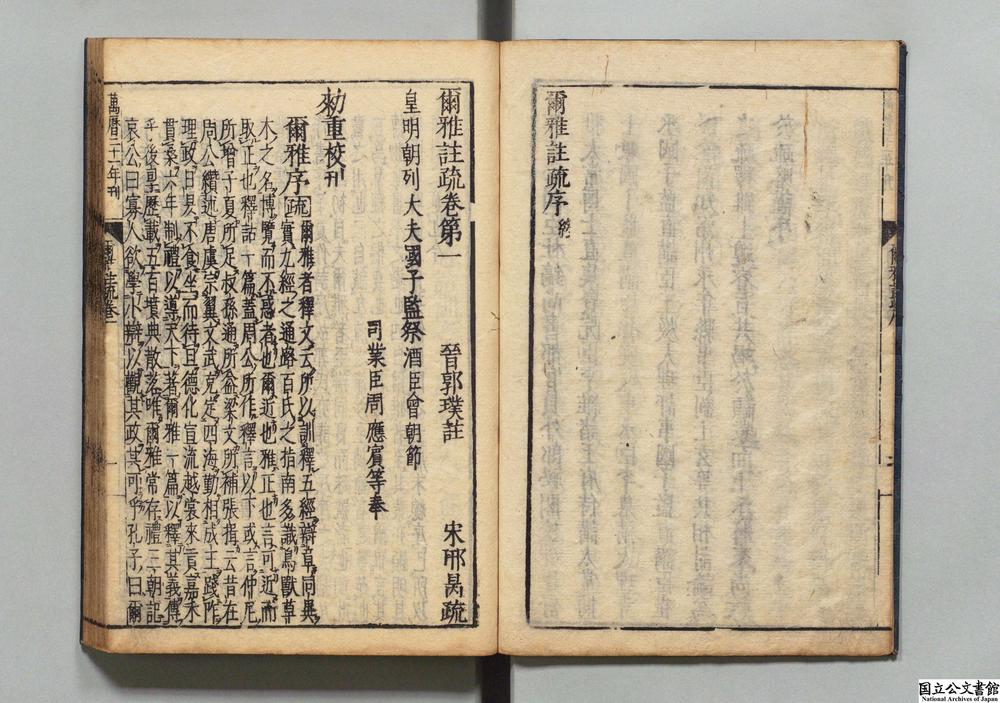 爾雅註疏序終
爾雅註疏卷第一
晉郭璞註 宋邢昺疏
皇明朝列大夫國子監祭酒臣曾朝節
司業臣周應賓等奉
勑重校刊
爾雅序疏爾雅者釋文云所以訓釋五經辯章同異
實九經之通路百氏之指南多識鳥獸草
木之名博覽而不惑者也爾近也雅正也言可近而
取正也釋詁一篇蓋周公所作釋言以下或言仲尼
所增子夏所足叔孫通所益梁文所補張揖云昔在
周公纘述唐虞宗翼文武克定四海勤相成王踐阼
理政日昃不食坐而待旦德化宣流越裳來貢嘉禾
貫桑六年制禮以導天下著爾雅一篇以釋其義傳
乎後𭛠歷載五百墳典散落唯爾雅常存禮三朝記
哀公曰寡人欲學小辯以觀其政其可乎孔子曰爾
萬曆二十一年刊
爾雅註疏卷一
国立公文書館
National Archives of Japan